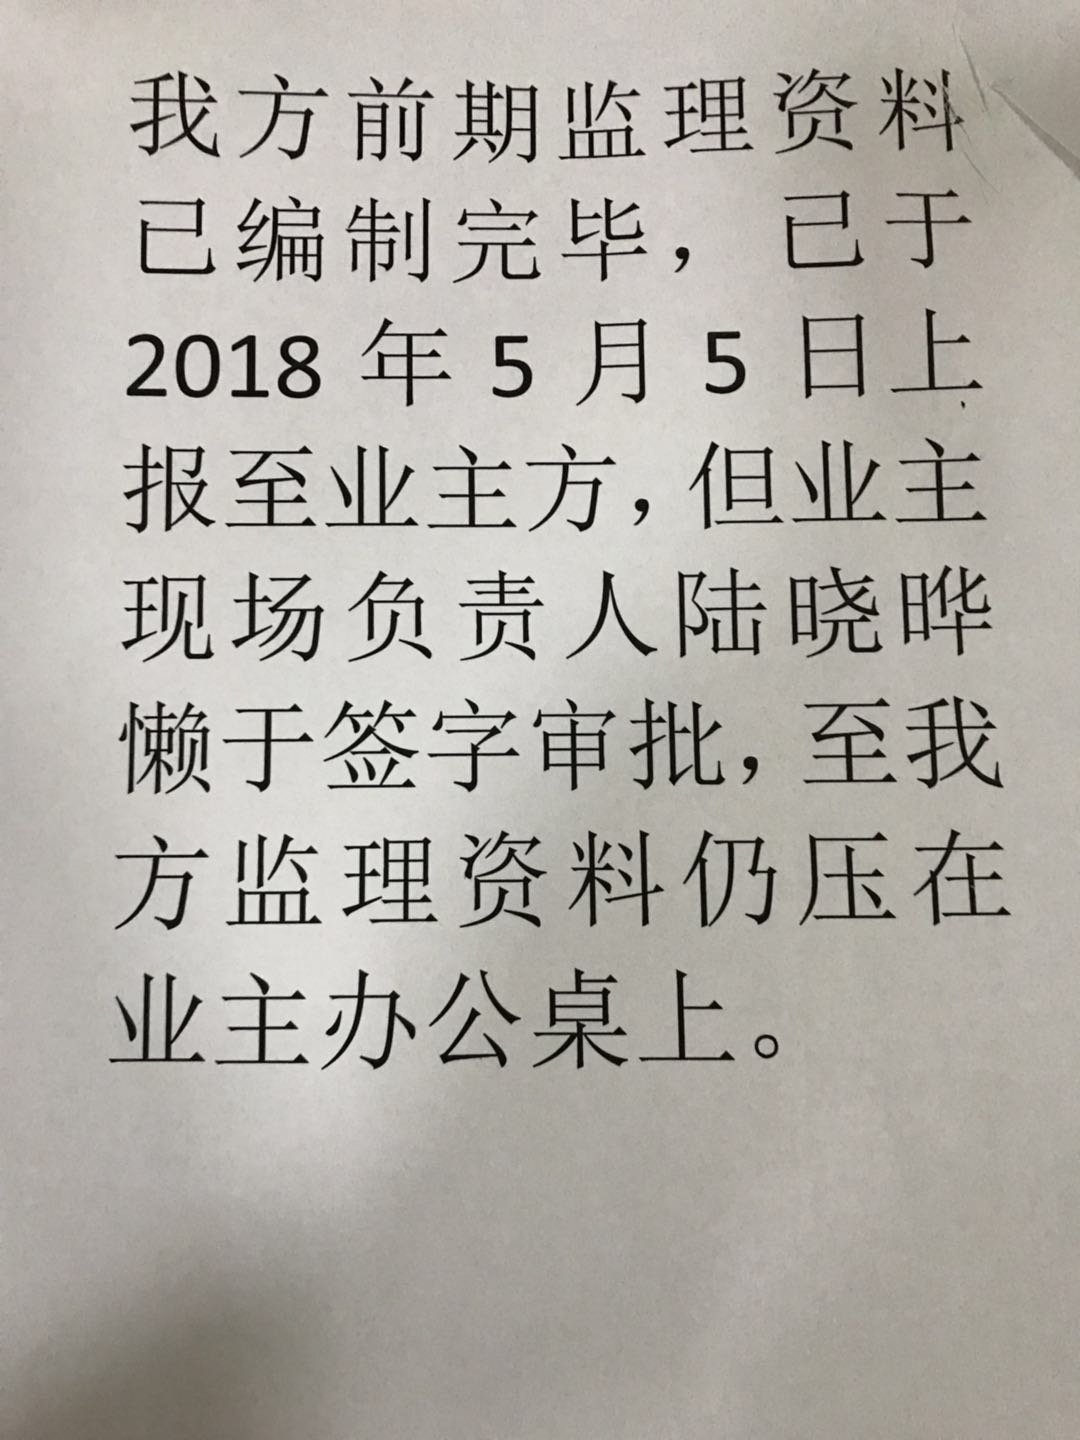 我方前期监理资料
已编制完毕，已于
2018 年 5 月 5 日上
报至业主方，但业主
现场负责人陆晓晔
懒于签字审批，至我
方监理资料仍压在
业主办公桌上。